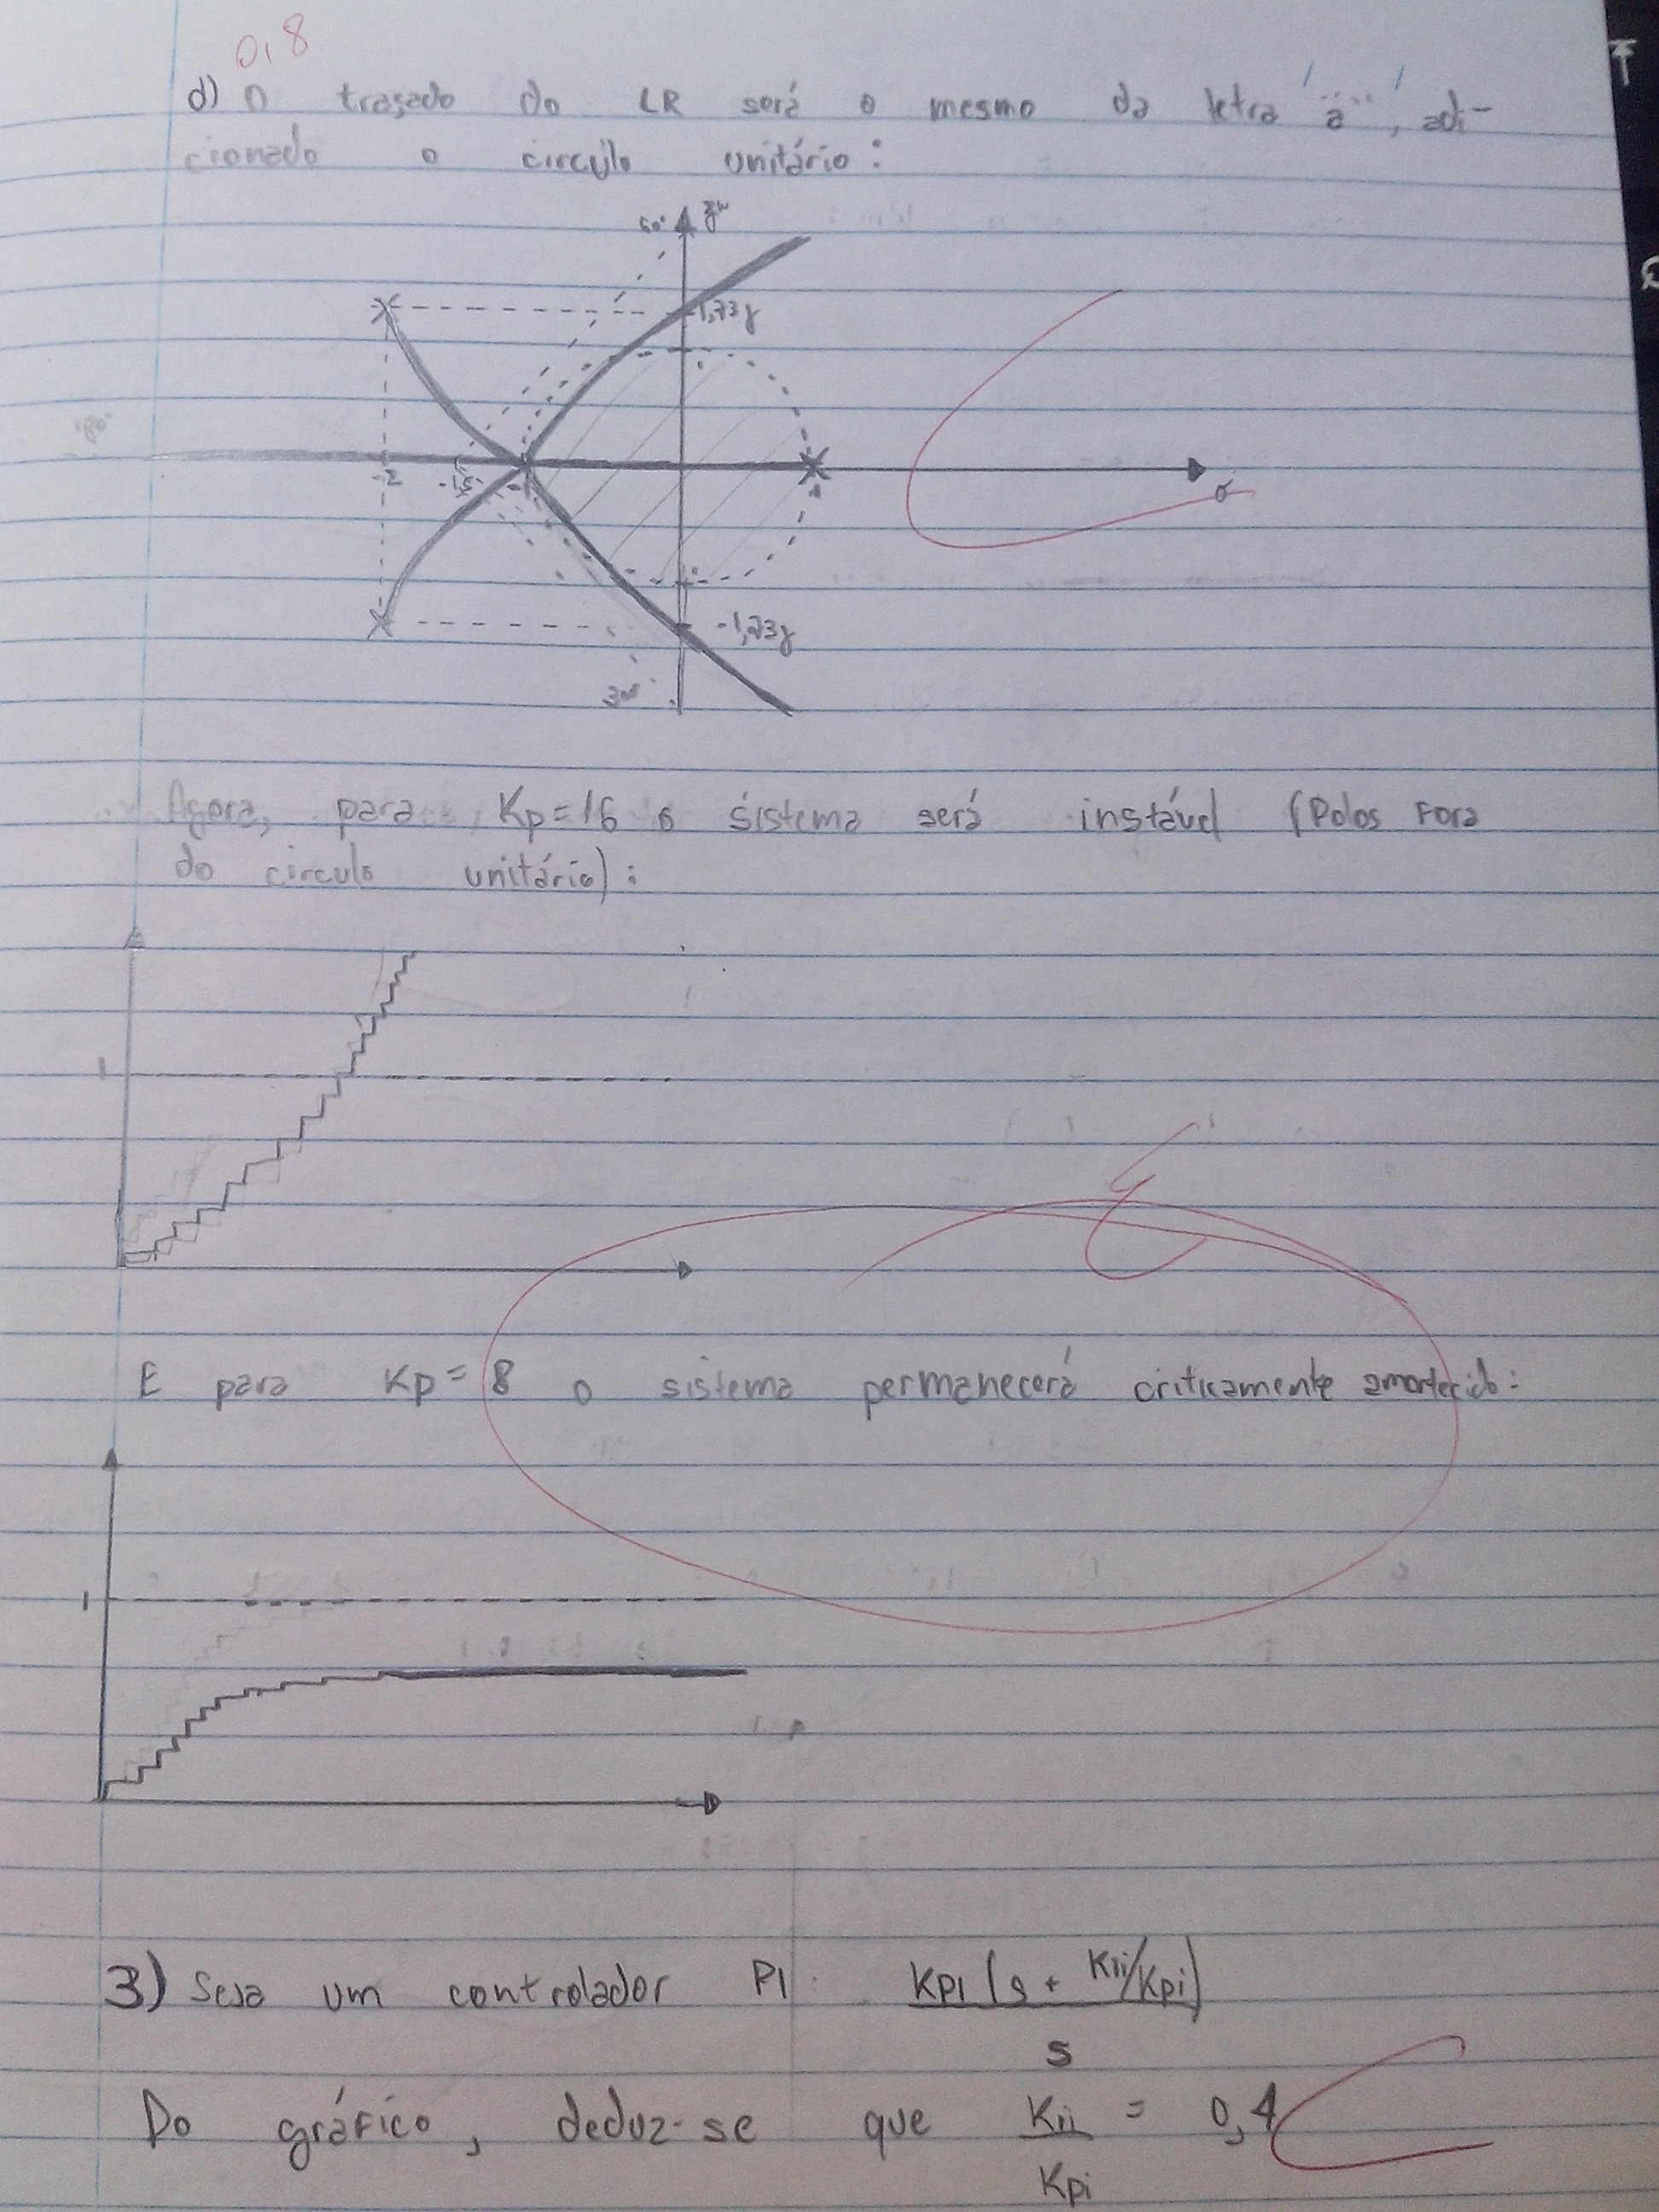 0,8
d) O traçado do LR será o mesmo da letra "a", adi-
cionado o circulo unitário:
60° jw
1,73j
-2 -1,5 -1 1 σ
-1,73j
300°
Agora, para Kp=16 o sistema será instável (Polos Fora
do circulo unitário):
1
E para Kp=8 o sistema permanecerá criticamente amortecido:
1
3) Seja um controlador PI: Kpi (s + Kii/Kpi)
s
Do gráfico, deduz-se que Kii = 0,4
Kpi